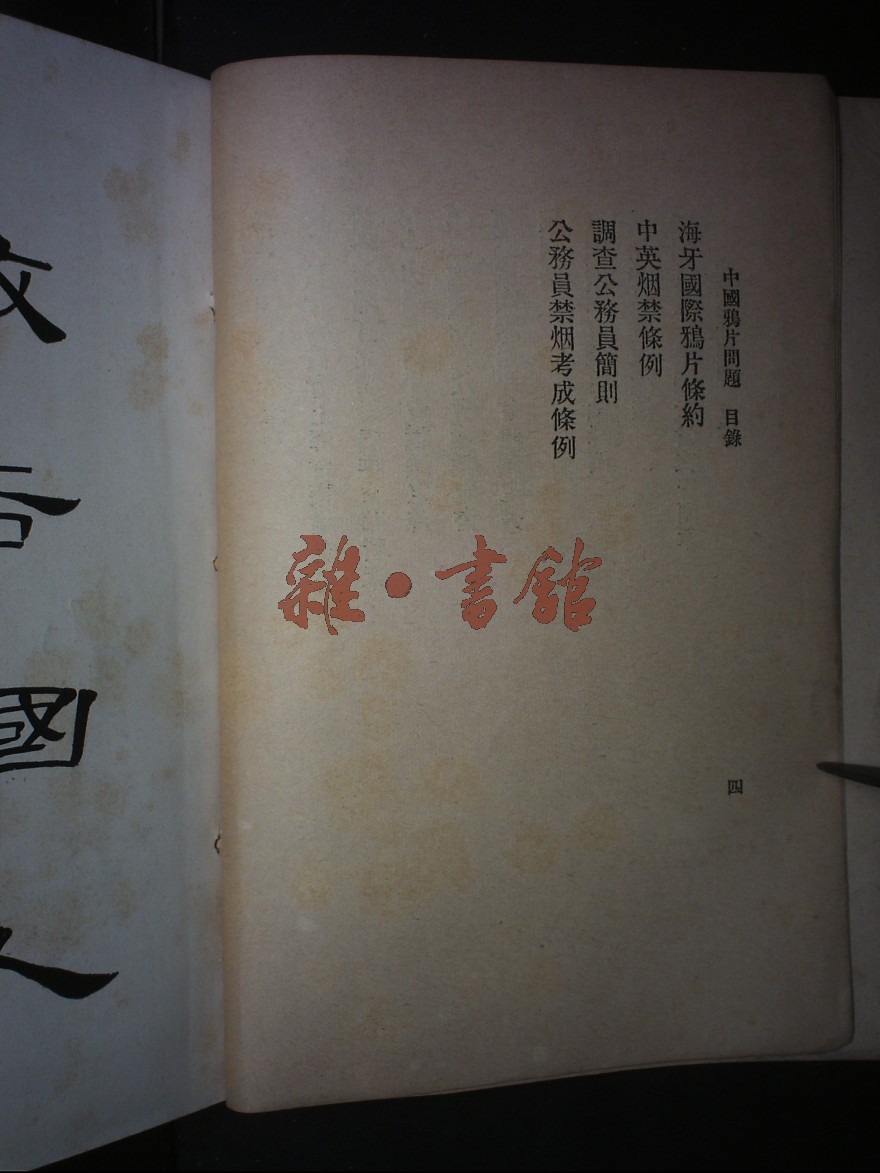 中國鴉片問題 目錄
四
海牙國際鴉片條約
中英烟禁條例
調查公務員簡則
公務員禁烟考成條例
雜•書館
國